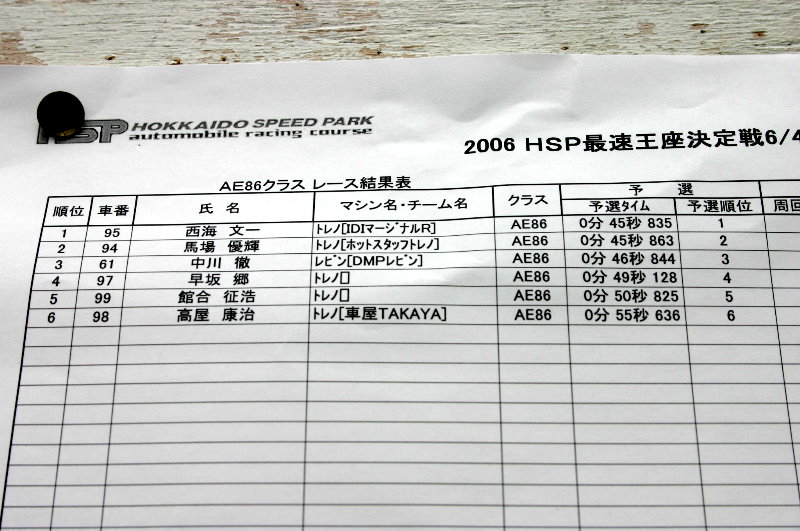 HSP HOKKAIDO SPEED PARK
automobile racing course
2006 HSP最速王座決定戦6/4
AE86クラス レース結果表
順位 車番 氏 名 マシン名・チーム名 クラス 予 選 周回
予選タイム 予選順位
1 95 西海 文一 トレノ[IDIマージナルR] AE86 0分 45秒 835 1
2 94 馬場 優輝 トレノ[ホットスタッフトレノ] AE86 0分 45秒 863 2
3 61 中川 徹 レビン[DMPレビン] AE86 0分 46秒 844 3
4 97 早坂 郷 トレノ[] AE86 0分 49秒 128 4
5 99 館合 征浩 トレノ[] AE86 0分 50秒 825 5
6 98 高屋 康治 トレノ[車屋TAKAYA] AE86 0分 55秒 636 6